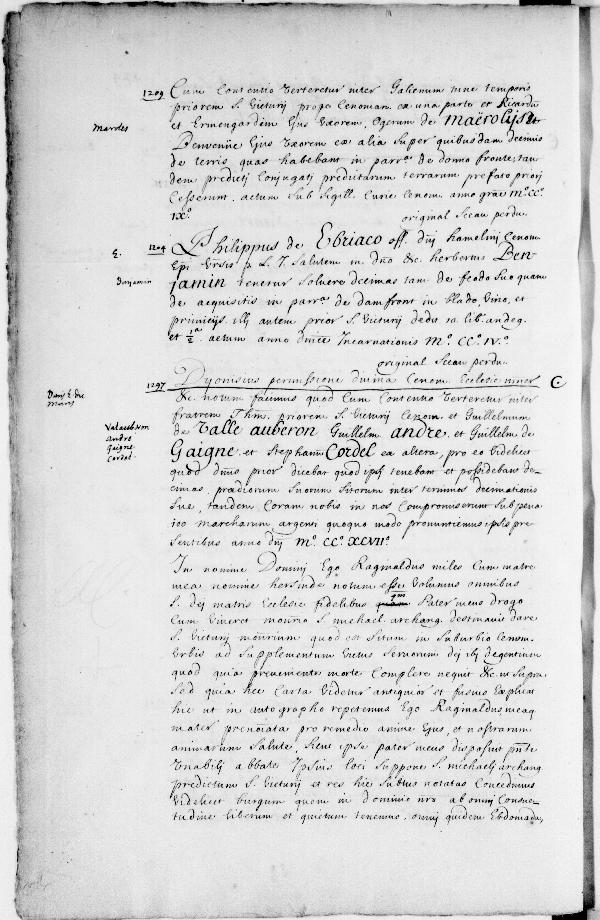 1209 Cum Contentio Verteretur inter Galienum tunc temporis
priorem S. Victurij prope Cenoman. ex una parte et Ricardu
Mardes
et Ermengardem Ejus Uxorem, Ogerum de Maërolijs et
Ejus Uxorem ex alia super quibusdam decimis
de terris quas habebant in parr.a de domno fronte, tan
dem predicti Conjugati predictarum terrarum prefato priorj
Cesserunt. actum sub sigill. Curie Cenom. anno gratie m.o cc.o
ix.o
original Sceau perdu.
E. 1204 Philippus de Ebriaco off. dnj hamelinj Cenom.
Epi. Salutem in dno &c. herbertus Ben
Benjamin
jamin tenetur solvere decimas tam de feodo suo quam
de acquisitis in parr.a de damfront in blado, Vino, et
primicijs. illj autem prior S. Victurij dedit 10 lib. andeg.
et actum anno dnice Incarnationis M.o CC.o IV.o
original Sceau perdu.
1297 Dyonisius permissione divina Cenom. Ecclesie
Denis E. du
Mans
&c. notum facimus quod Cum Contentio Verteretur inter
fratrem Thm. priorem S. Victurij Cenom. et Guillelmum
Andre
Gaigne
Cordel.
de Valle auberon Guillelm. andre. et Guillelm. de
Gaigne. et Stephanum Cordel ex altera, pro eo Videlicet
quod dnus prior dicebat quod ipsj tenebant et possidebant de-
cimas prædiorum suorum sitorum inter terminos decimationis
sue, tandem Coram nobis in nos Compromiserunt sub pena
100 marcharum argenti quoquo modo pronuntiemus ipsis pre
sentibus anno dnj M.o CC.o XCVII.o
In nomine Dominj Ego Raginaldus miles Cum matre
mea nomine hersinde notum esse Volumus omnibus
S. dej matris Ecclesie fidelibus qm Pater meus Drogo
Cum Viveret monrio S. michael. archang. destinavit dare
S. Victurij monrium quod est situm in suburbio Cenom.
Urbis ad supplementum Victus servorum dej ibj degentium
quod quia preveniente morte Complere nequit &c. ut supra
Sed quia hec Carta Videtur antiquior et fusius Explicat
hic ut in autographo repetemus Ego Raginaldus, meaq
mater prenotata pro remedio anime Ejus, et nostrarum
animarum Salute, sicut ipse pater meus disposuit
abbate Ipsius loci suppono S. michaelj archang.
predictum S. Victurij et res hic subtus notatas Concedimus
Videlicet burgum quem in dominio nro ab omnj Consue-
tudine liberum et quietum tenemus, omnj quidem Ebdomada,